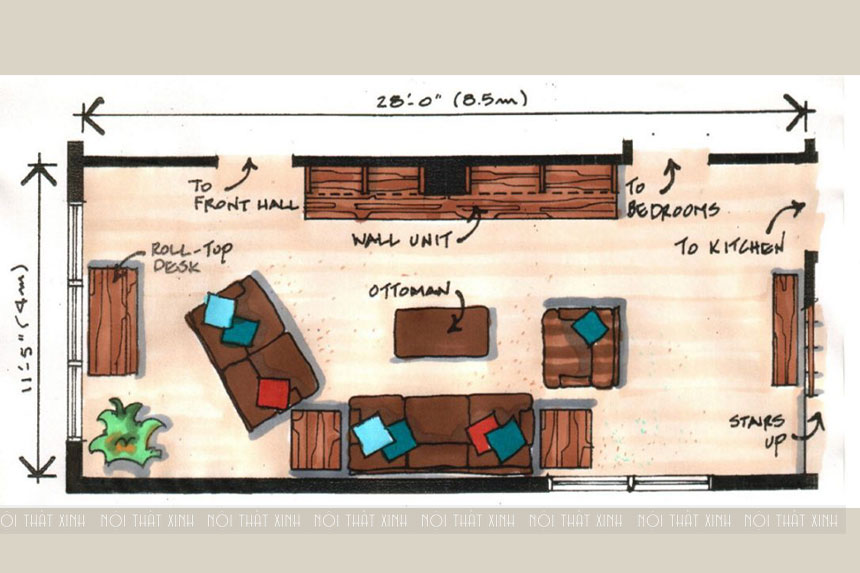 28'-0" (8.5m)
TO
FRONT HALL
TO
BEDROOMS
WALL UNIT
TO KITCHEN
ROLL-TOP
DESK
OTTOMAN
11'-5" (4m)
STAIRS
UP
NỘI THẤT XINH NỘI THẤT XINH NỘI THẤT XINH NỘI THẤT XINH NỘI THẤT XINH NỘI THẤT XINH NỘI THẤT XINH NỘI THẤT XINH